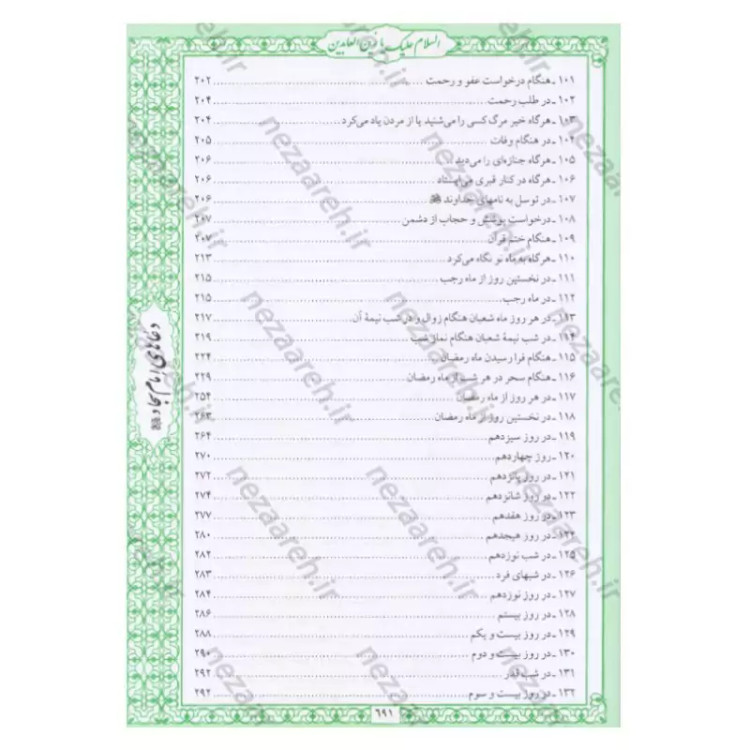 السلام علیک یا زین العابدین
۱۰۱ ـ هنگام درخواست عفو و رحمت ۲۰۲
۱۰۲ ـ در طلب رحمت ۲۰۴
۱۰۳ ـ هرگاه خبر مرگ کسی را می‌شنید یا از مردن یاد می‌کرد ۲۰۴
۱۰۴ ـ در هنگام وفات ۲۰۵
۱۰۵ ـ هرگاه جنازه‌ای را می‌دید ۲۰۶
۱۰۶ ـ هرگاه در کنار قبری می‌ایستاد ۲۰۶
۱۰۷ ـ در توسل به نامهای خداوند ۲۰۶
۱۰۸ ـ درخواست پوشش و حجاب از دشمن ۲۰۷
۱۰۹ ـ هنگام ختم قرآن ۲۰۷
۱۱۰ ـ هرگاه به ماه نو نگاه می‌کرد ۲۱۳
۱۱۱ ـ در نخستین روز از ماه رجب ۲۱۵
۱۱۲ ـ در ماه رجب ۲۱۵
۱۱۳ ـ در هر روز ماه شعبان هنگام زوال و در شب نیمهٔ آن ۲۱۷
۱۱۴ ـ در شب نیمهٔ شعبان هنگام نماز شب ۲۱۹
۱۱۵ ـ هنگام فرا رسیدن ماه رمضان ۲۲۴
۱۱۶ ـ هنگام سحر در هر شب از ماه رمضان ۲۲۹
۱۱۷ ـ در هر روز از ماه رمضان ۲۵۴
۱۱۸ ـ در نخستین روز از ماه رمضان
۱۱۹ ـ در روز سیزدهم ۲۶۴
۱۲۰ ـ روز چهاردهم ۲۷۰
۱۲۱ ـ در روز پانزدهم ۲۷۲
۱۲۲ ـ در روز شانزدهم ۲۷۴
۱۲۳ ـ در روز هفدهم ۲۷۷
۱۲۴ ـ در روز هیجدهم ۲۸۰
۱۲۵ ـ در شب نوزدهم ۲۸۲
۱۲۶ ـ در شبهای فرد ۲۸۳
۱۲۷ ـ در روز نوزدهم ۲۸۴
۱۲۸ ـ در روز بیستم ۲۸۶
۱۲۹ ـ در روز بیست و یکم ۲۸۸
۱۳۰ ـ در روز بیست و دوم ۲۹۰
۱۳۱ ـ در شب قدر ۲۹۲
۱۳۲ ـ در روز بیست و سوم ۲۹۲
دعاهای امام سجاد
۶۹۱
nezaareh.ir